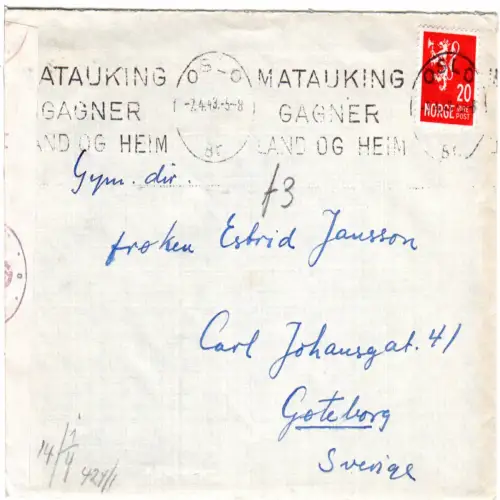 MATAUKING
GAGNER
LAND OG HEIM
OSLO
-2.4.43.-5-6
Br
MATAUKING
GAGNER
LAND OG HEIM
OSLO
Br
20
NORGE
POST
Gym. dir.
f3
frøken Estrid Jansson
Carl Johansgat. 41
Göteborg
Sverige
14/4
427/1